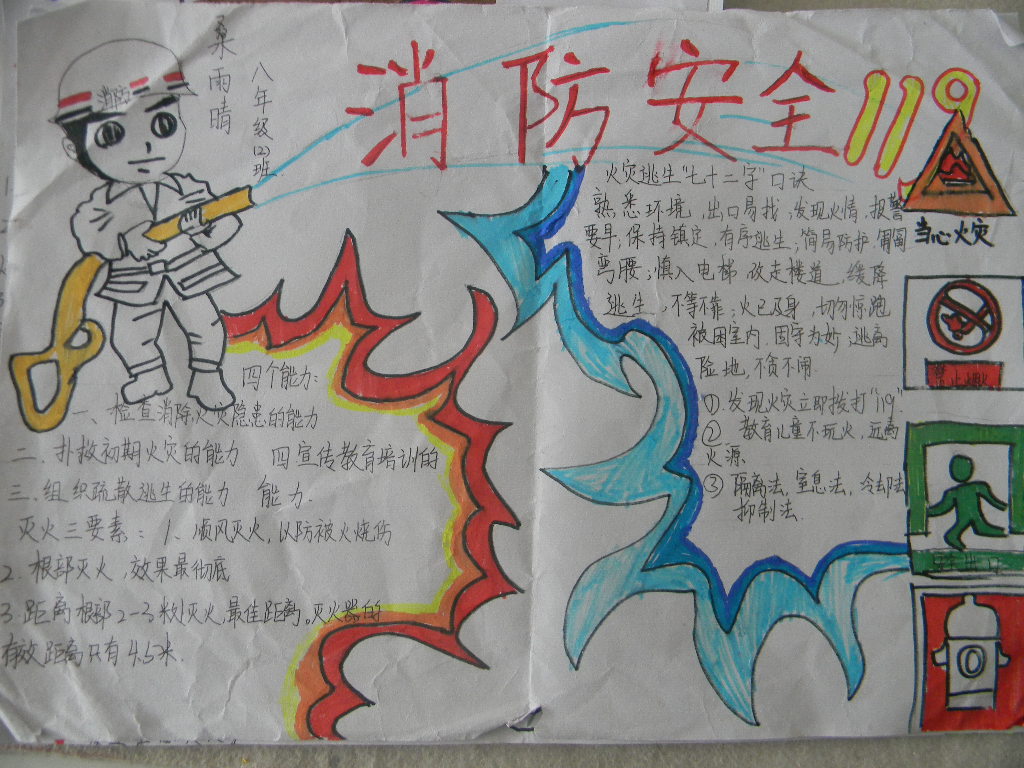 消防安全119
消防
桑雨晴
八年级(2)班
火灾逃生"七十二字"口诀
熟悉环境,出口易找;发现火情,报警
要早;保持镇定,有序逃生;简易防护,匍匐
弯腰;慎入电梯,改走楼道,缓降
逃生,不等靠;火已及身,切勿惊跑
被困室内,固守为妙;逃离
险地,不贪不闹.
①.发现火灾立即拨打"119".
② 教育儿童不玩火,远离
火源.
③ 隔离法,窒息法,冷却法
抑制法.
四个能力:
一、检查消除火灾隐患的能力
二、扑救初期火灾的能力 四宣传教育培训的
三、组织疏散逃生的能力 能力.
灭火三要素:1、顺风灭火,以防被火烧伤
2.根部灭火,效果最彻底
3.距离根部2-3米灭火,最佳距离。灭火器的
有效距离只有4.5米.
当心火灾
禁止烟火